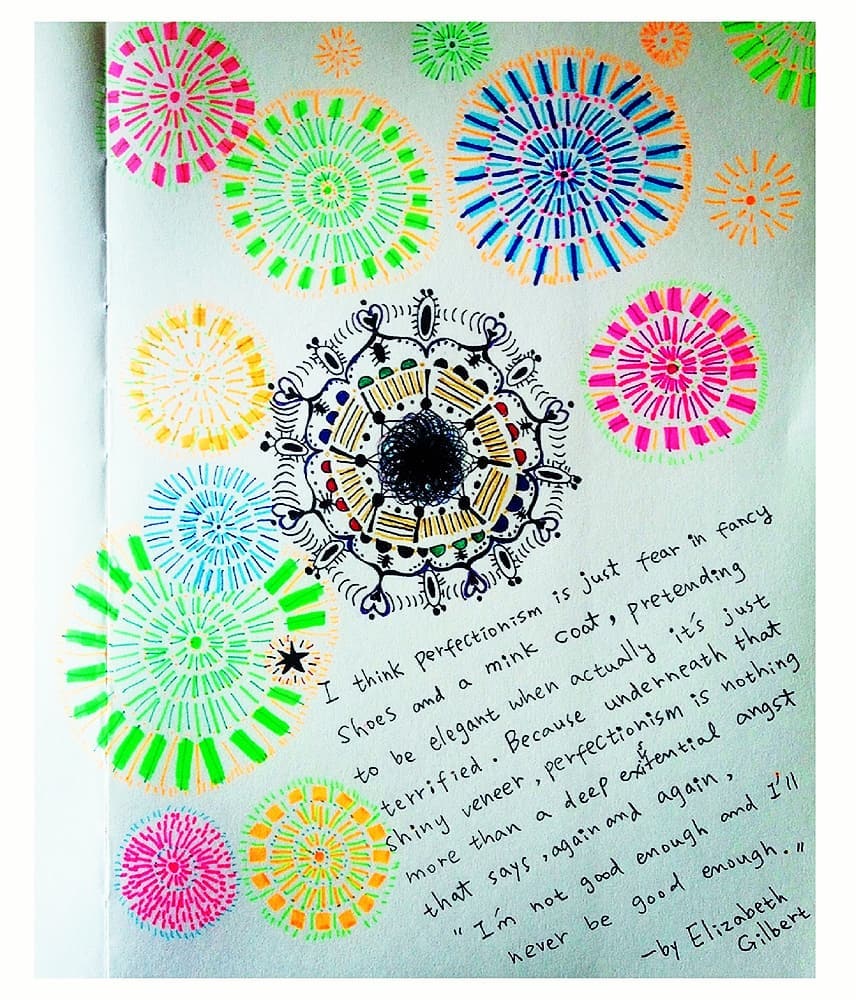 I think perfectionism is just fear in fancy
shoes and a mink coat, pretending
to be elegant when actually it's just
terrified. Because underneath that
shiny veneer, perfectionism is nothing
more than a deep existential angst
that says, again and again,
"I'm not good enough and I'll
never be good enough."
—by Elizabeth
Gilbert